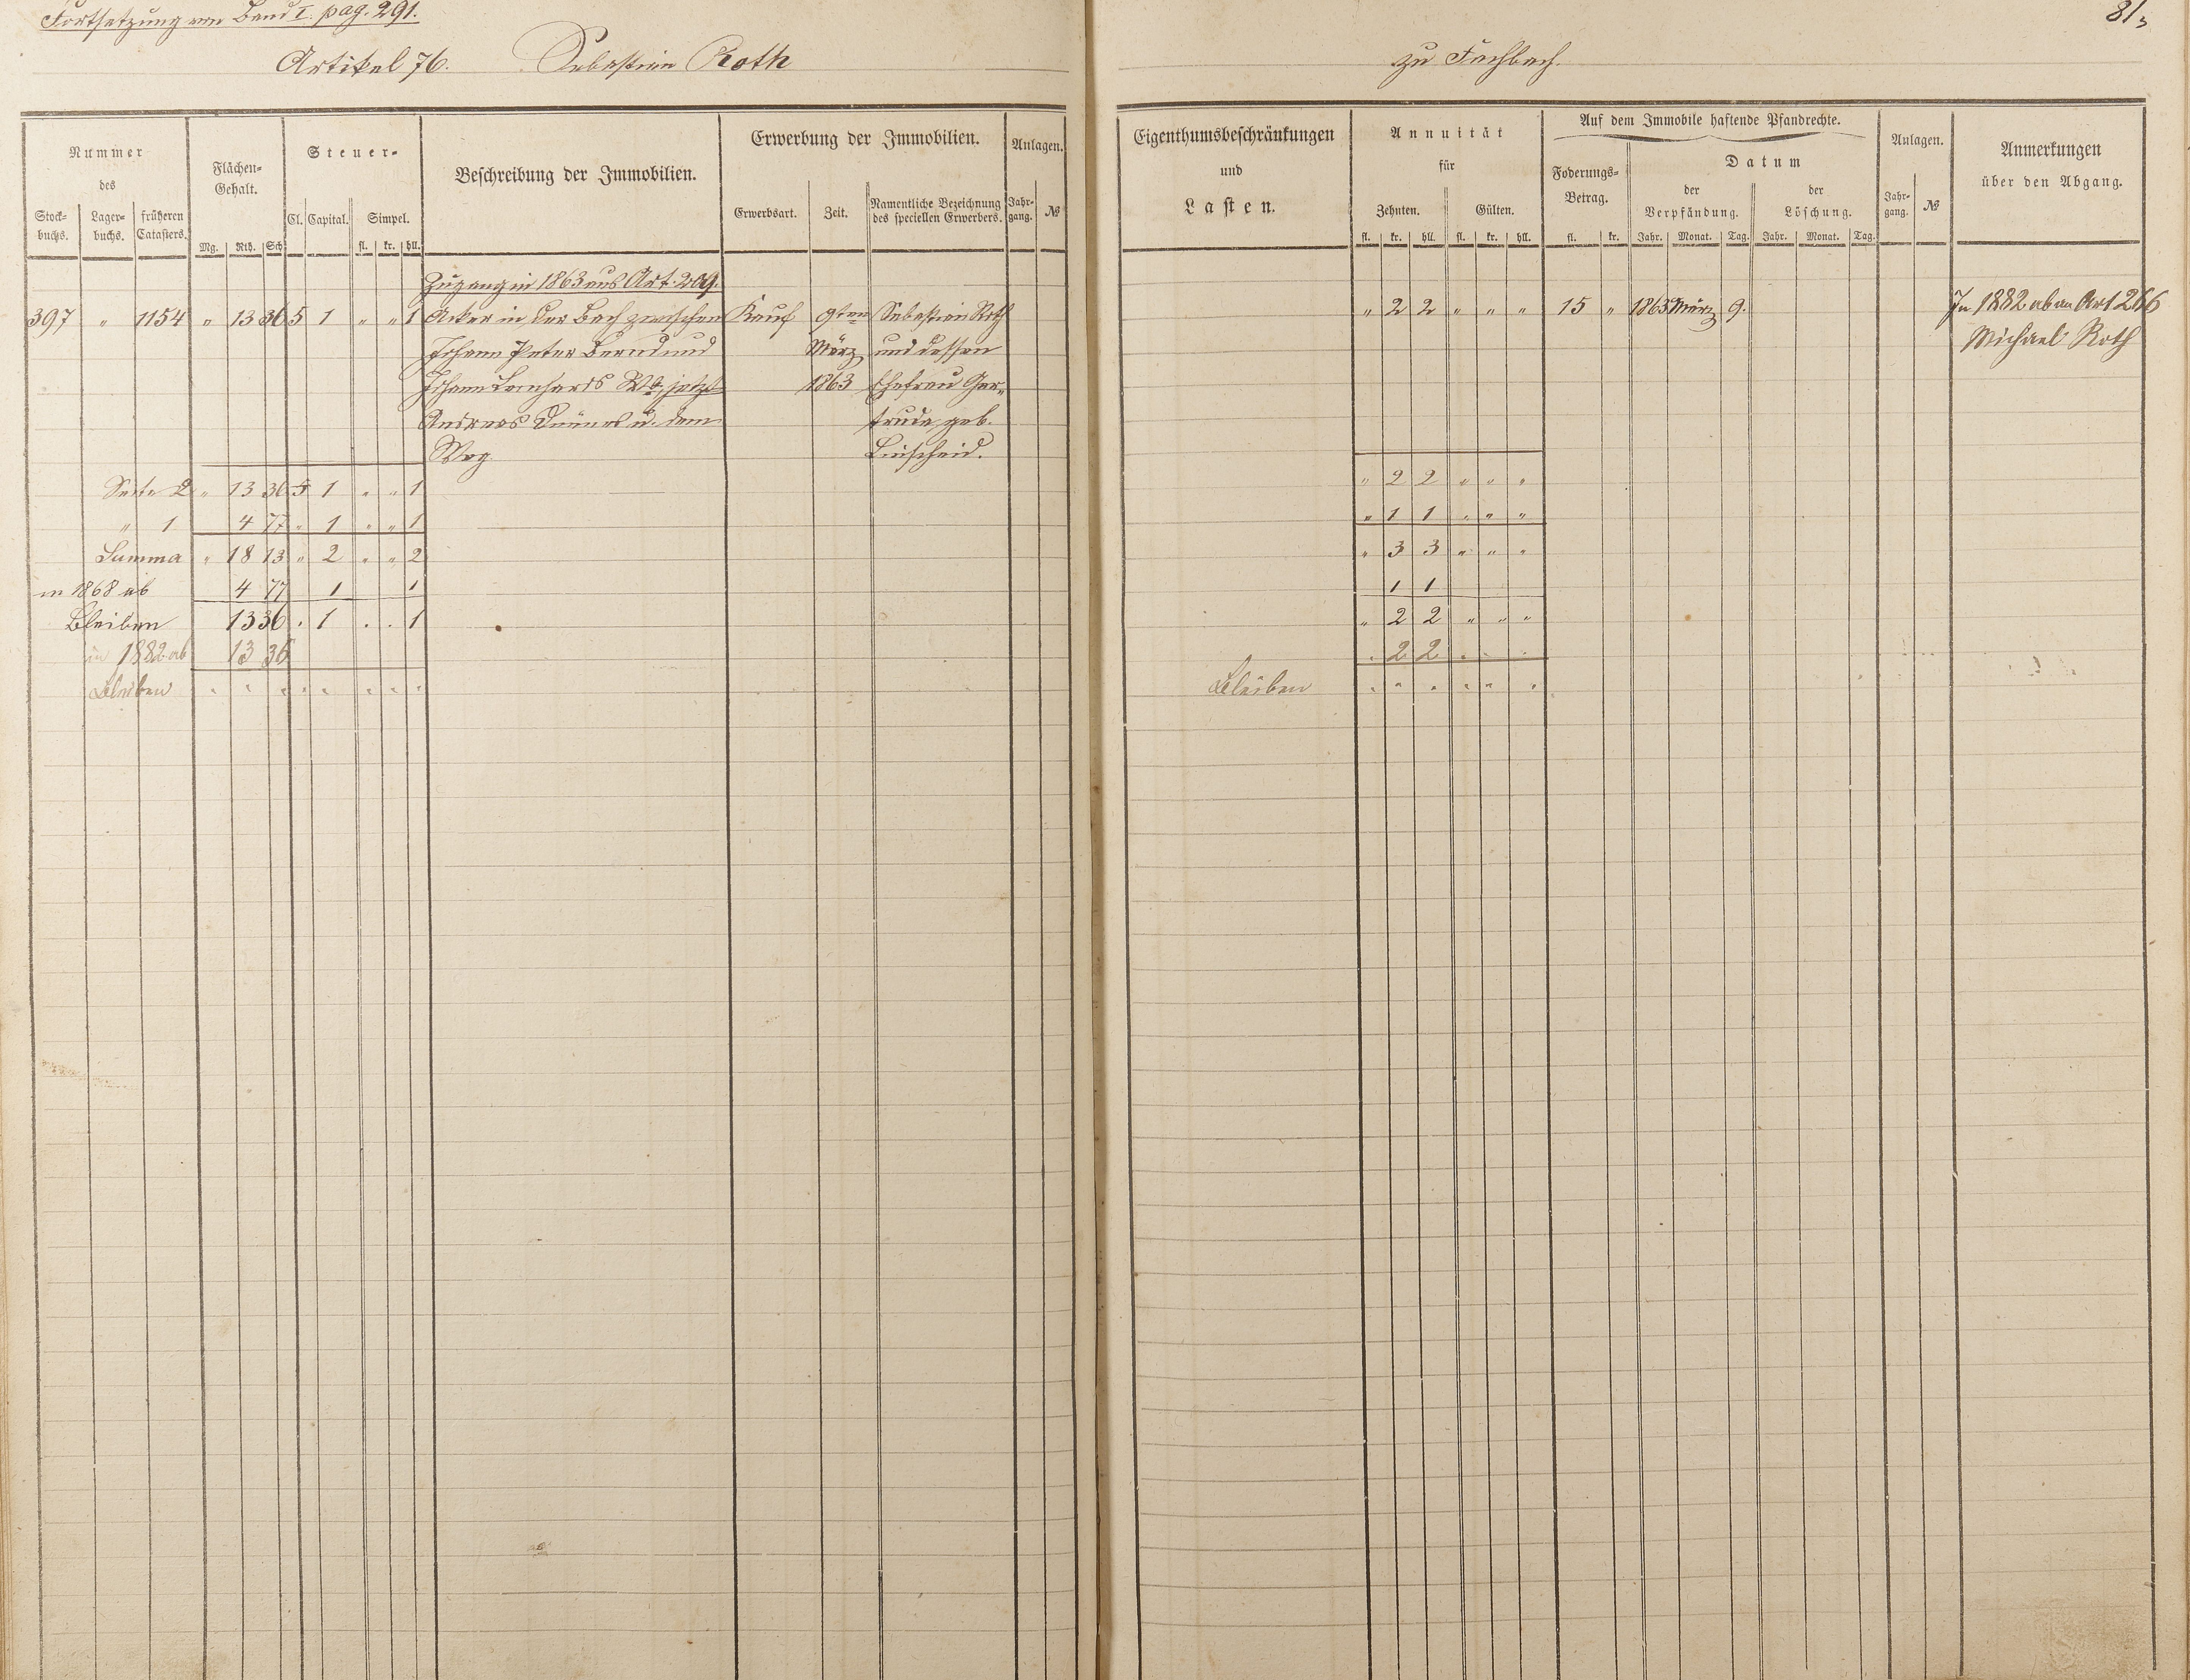 Fortsetzung von Band I. pag. 291.
81
Artikel 76. Sebastian Roth
zu Fachbach.
Nummer
des
Stock-
buchs.
Lager-
buchs.
früheren
Catasters.
Flächen-
Gehalt.
Mg. Rth. Sch.
Steuer-
Cl. Capital. Simpel.
fl. kr. hll.
Beschreibung der Immobilien.
Erwerbung der Immobilien.
Erwerbsart. Zeit.
Namentliche Bezeichnung
des speciellen Erwerbers.
Anlagen.
Jahr-
gang. №
Eigenthumsbeschränkungen
und
Lasten.
Annuität
für
Zehnten. Gülten.
fl. kr. hll. fl. kr. hll.
Auf dem Immobile haftende Pfandrechte.
Foderungs-
Betrag.
fl. kr.
Datum
der
Verpfändung.
der
Löschung.
Jahr. Monat. Tag. Jahr. Monat. Tag.
Anlagen.
Jahr-
gang. №
Anmerkungen
über den Abgang.
Zugang in 1863 aus Art. 209.
397 " 1154 " 13 36 5 1 " " 1 Acker in der Bach zwischen Kauf 9ten Sebastian Roth " 2 2 " " " 15 " 1863 März 9. In 1882 ab an Art 266
Johann Peter Bernd und März und dessen Michael Roth
Johann Leonhards Wb, jetzt 1863 Ehefrau Ger-
Andreas u. dem trude, geb.
Weg. Linscheid.
Seite 2 " 13 36 5 1 " " 1 " 2 2 " " "
" 1 4 77 " 1 " " 1 " 1 1 " " "
Summa " 18 13 " 2 " " 2 " 3 3 " " "
in 1868 ab 4 77 1 1 1 1
Bleiben 13 36 . 1 . . 1 " 2 2 " " "
in 1882 ab 13 36 . 2 2 . . .
Bleiben " " " " " " " " Bleiben " " " " " "